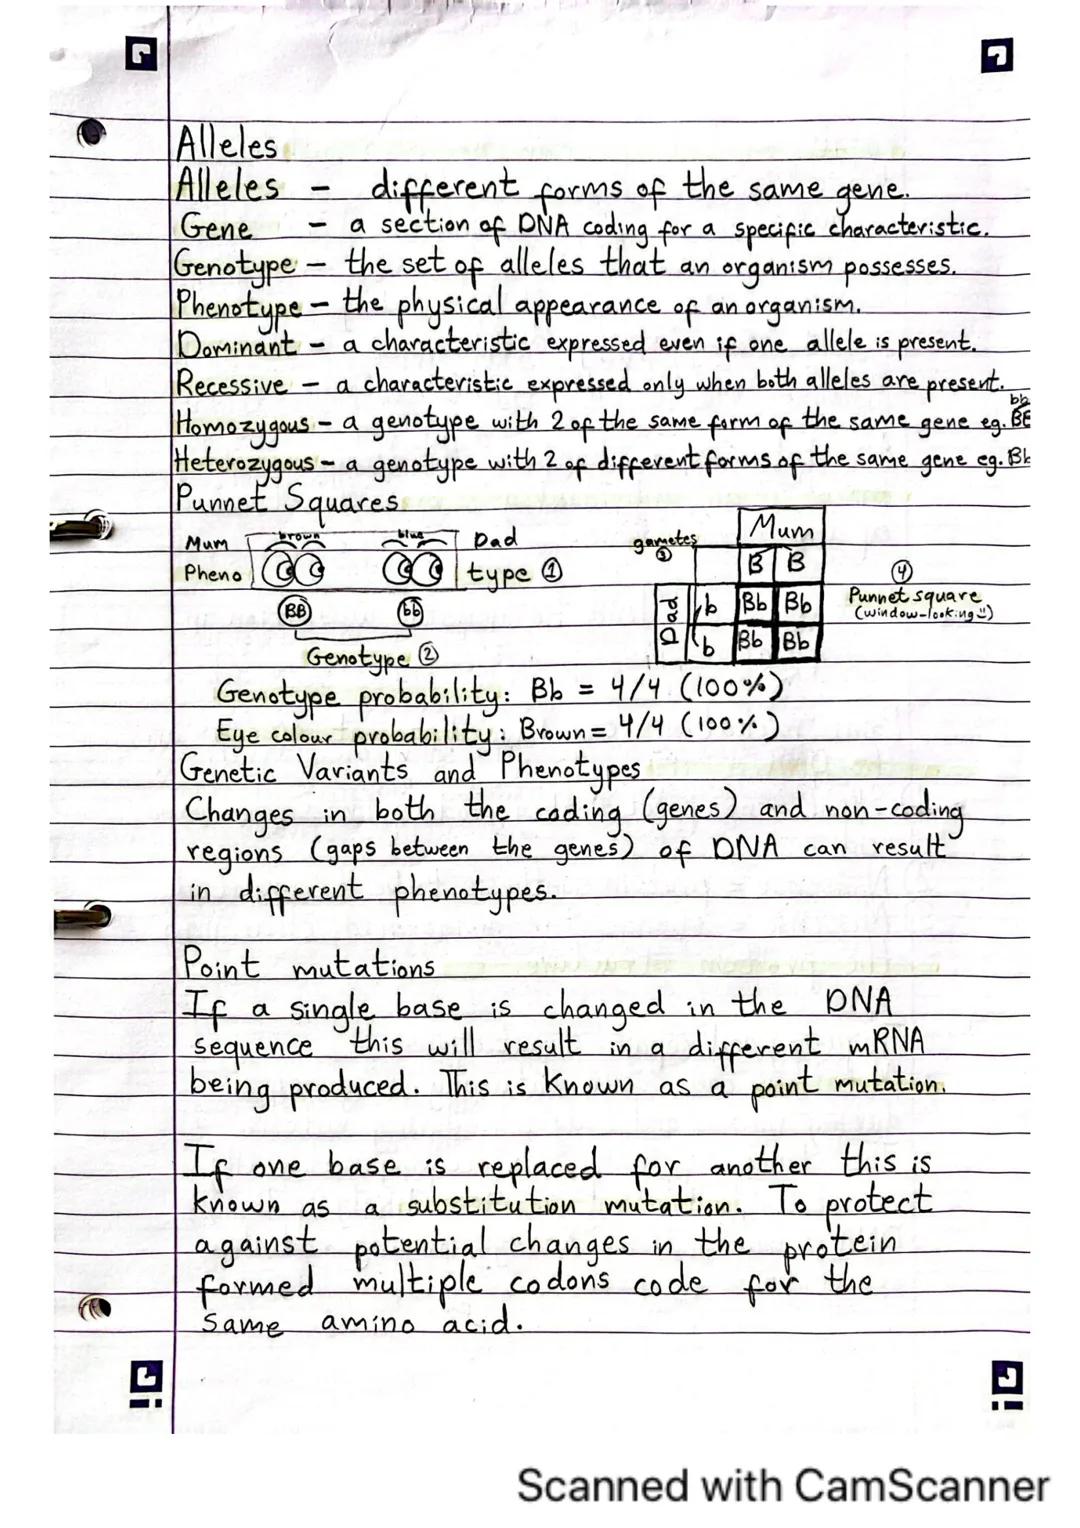 Alleles
Alleles - different forms of the same gene.
Gene - a section of DNA coding for a specific characteristic.
Genotype - the set of alleles that an organism possesses.
Phenotype - the physical appearance of an organism.
Dominant - a characteristic expressed even if one allele is present.
Recessive - a characteristic expressed only when both alleles are present.
bb
Homozygous - a genotype with 2 of the same form of the same gene eg. BB
Heterozygous - a genotype with 2 of different forms of the same gene eg. Bb
Punnet Squares
Mum brown blue Dad
Pheno type ①
BB bb
Genotype ②
gametes ③
Mum
B B
Dad
b Bb Bb
b Bb Bb
④
Punnet square
(window-looking ")
Genotype probability: Bb = 4/4 (100%)
Eye colour probability: Brown = 4/4 (100%)
Genetic Variants and Phenotypes
Changes in both the coding (genes) and non-coding
regions (gaps between the genes) of DNA can result
in different phenotypes.
Point mutations
If a single base is changed in the DNA
sequence this will result in a different mRNA
being produced. This is known as a point mutation.
If one base is replaced for another this is
known as a substitution mutation. To protect
against potential changes in the protein
formed multiple codons code for the
same amino acid.
Scanned with CamScanner